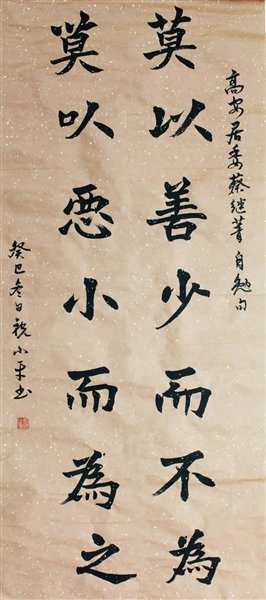 高安居委蔡继菁自勉句
莫以善少而不為
莫以惡小而為之
癸巳冬日祝小平书